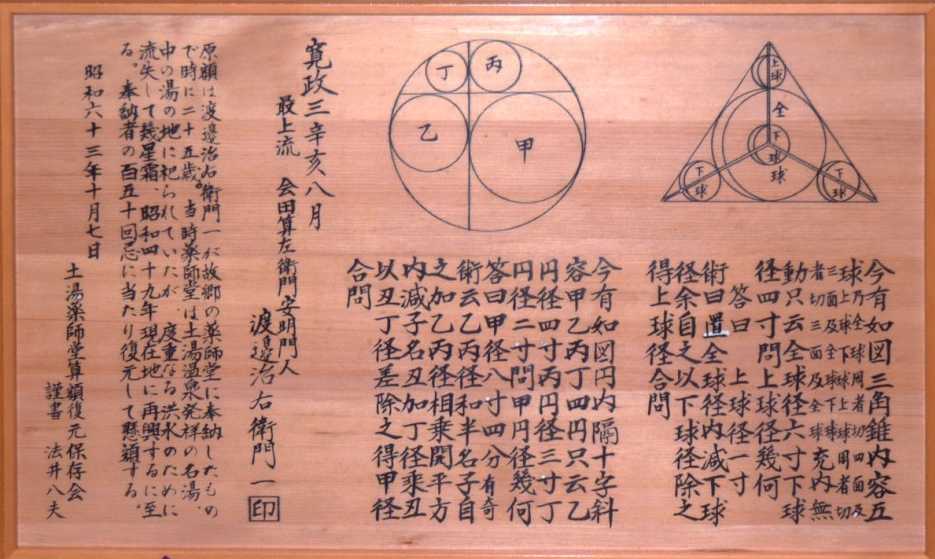 上球
全球
下球
下球
下球
今有如図三角錐内容五
球
充内無
動只云全球径六寸下球
径四寸問上球径幾何
答曰 上球径一寸
術曰置全球径内減下球
径余自之以下球径除之
得上球径合問
丁
丙
乙
甲
今有如図円内隔十字斜
容甲乙丙丁四円只云乙
円径四寸丙円径三寸丁
円径二寸問甲円径幾何
答曰甲径八寸四分有奇
術云乙丙径和半名子自
之加乙丙径相乗開平方
内減子名丑加丁径乗丑
以丑丁径差除之得甲径
合問
寛政三辛亥八月
最上流 会田算左衛門安明門人
渡邉治右衛門一 印
原額は渡邉治右衛門一が故郷の薬師堂に奉納したもの
で時に二十五歳。当時薬師堂は土湯温泉発祥の名湯、
中の湯の地に祀られていたが、度重なる洪水のために
流失して幾星霜、昭和四十九年現在地に再興するに至
る。奉納者の百五十回忌に当たり復元して懸額する。
昭和六十三年十月七日
土湯薬師堂算額復元保存会
謹書 法井八夫